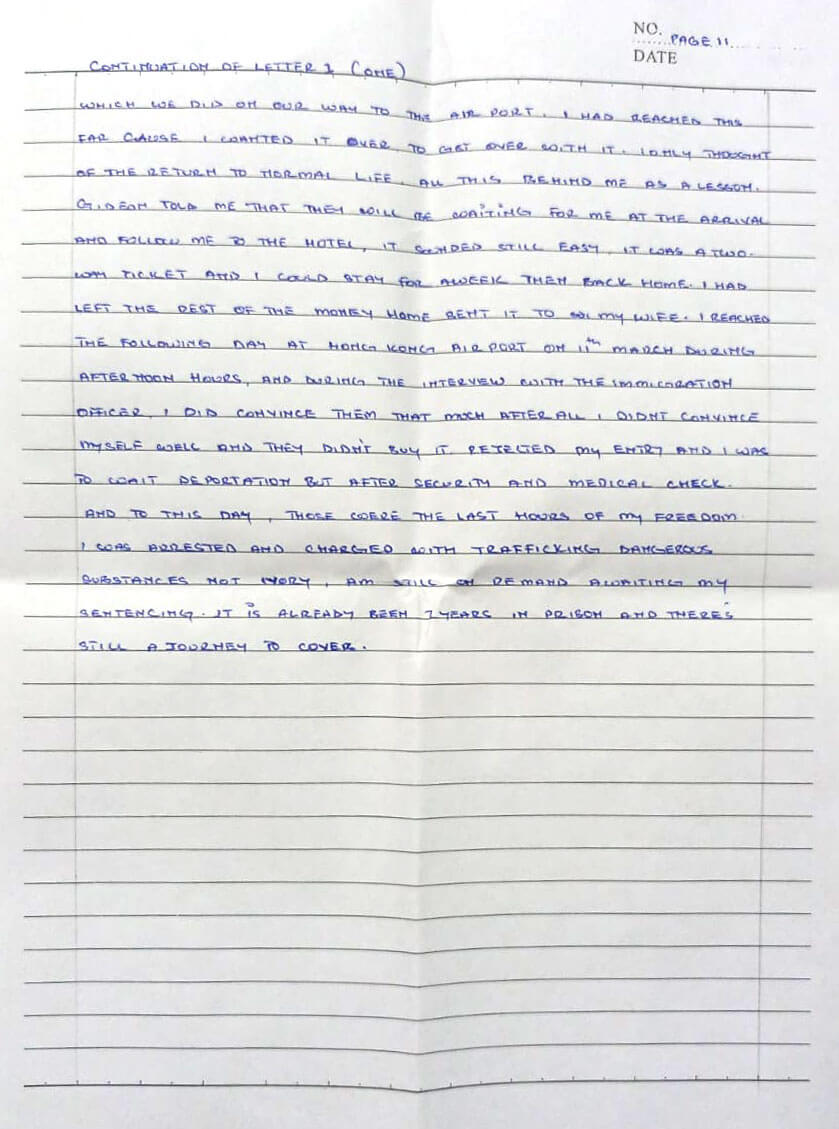 NO. PAGE 11
DATE
CONTINUATION OF LETTER 1 (ONE)
WHICH WE DID ON OUR WAY TO THE AIR PORT. I HAD REACHED THIS
FAR CAUSE I WANTED IT OVER, TO GET OVER WITH IT. I ONLY THOUGHT
OF THE RETURN TO NORMAL LIFE, ALL THIS BEHIND ME AS A LESSON.
GIDEON TOLD ME THAT THEY WILL BE WAITING FOR ME AT THE ARRIVAL
AND FOLLOW ME TO THE HOTEL, IT SOUNDED STILL EASY, IT WAS A TWO-
WAY TICKET AND I COULD STAY FOR AWEEK THEN BACK HOME. I HAD
LEFT THE REST OF THE MONEY HOME SENT IT TO MY WIFE. I REACHED
THE FOLLOWING DAY AT HONG KONG AIR PORT ON 11th MARCH DURING
AFTERNOON HOURS, AND DURING THE INTERVIEW WITH THE IMMIGRATION
OFFICER, I DID CONVINCE THEM THAT MUCH AFTER ALL I DIDNT CONVINCE
MYSELF WELL AND THEY DIDN'T BUY IT. REJECTED MY ENTRY AND I WAS
TO WAIT DEPORTATION BUT AFTER SECURITY AND MEDICAL CHECK.
AND TO THIS DAY, THOSE WERE THE LAST HOURS OF MY FREEDOM.
I WAS ARRESTED AND CHARGED WITH TRAFFICKING DANGEROUS
SUBSTANCES NOT IVORY, AM STILL ON REMAND AWAITING MY
SENTENCING. IT IS ALREADY BEEN 2YEARS IN PRISON AND THERE'S
STILL A JOURNEY TO COVER.